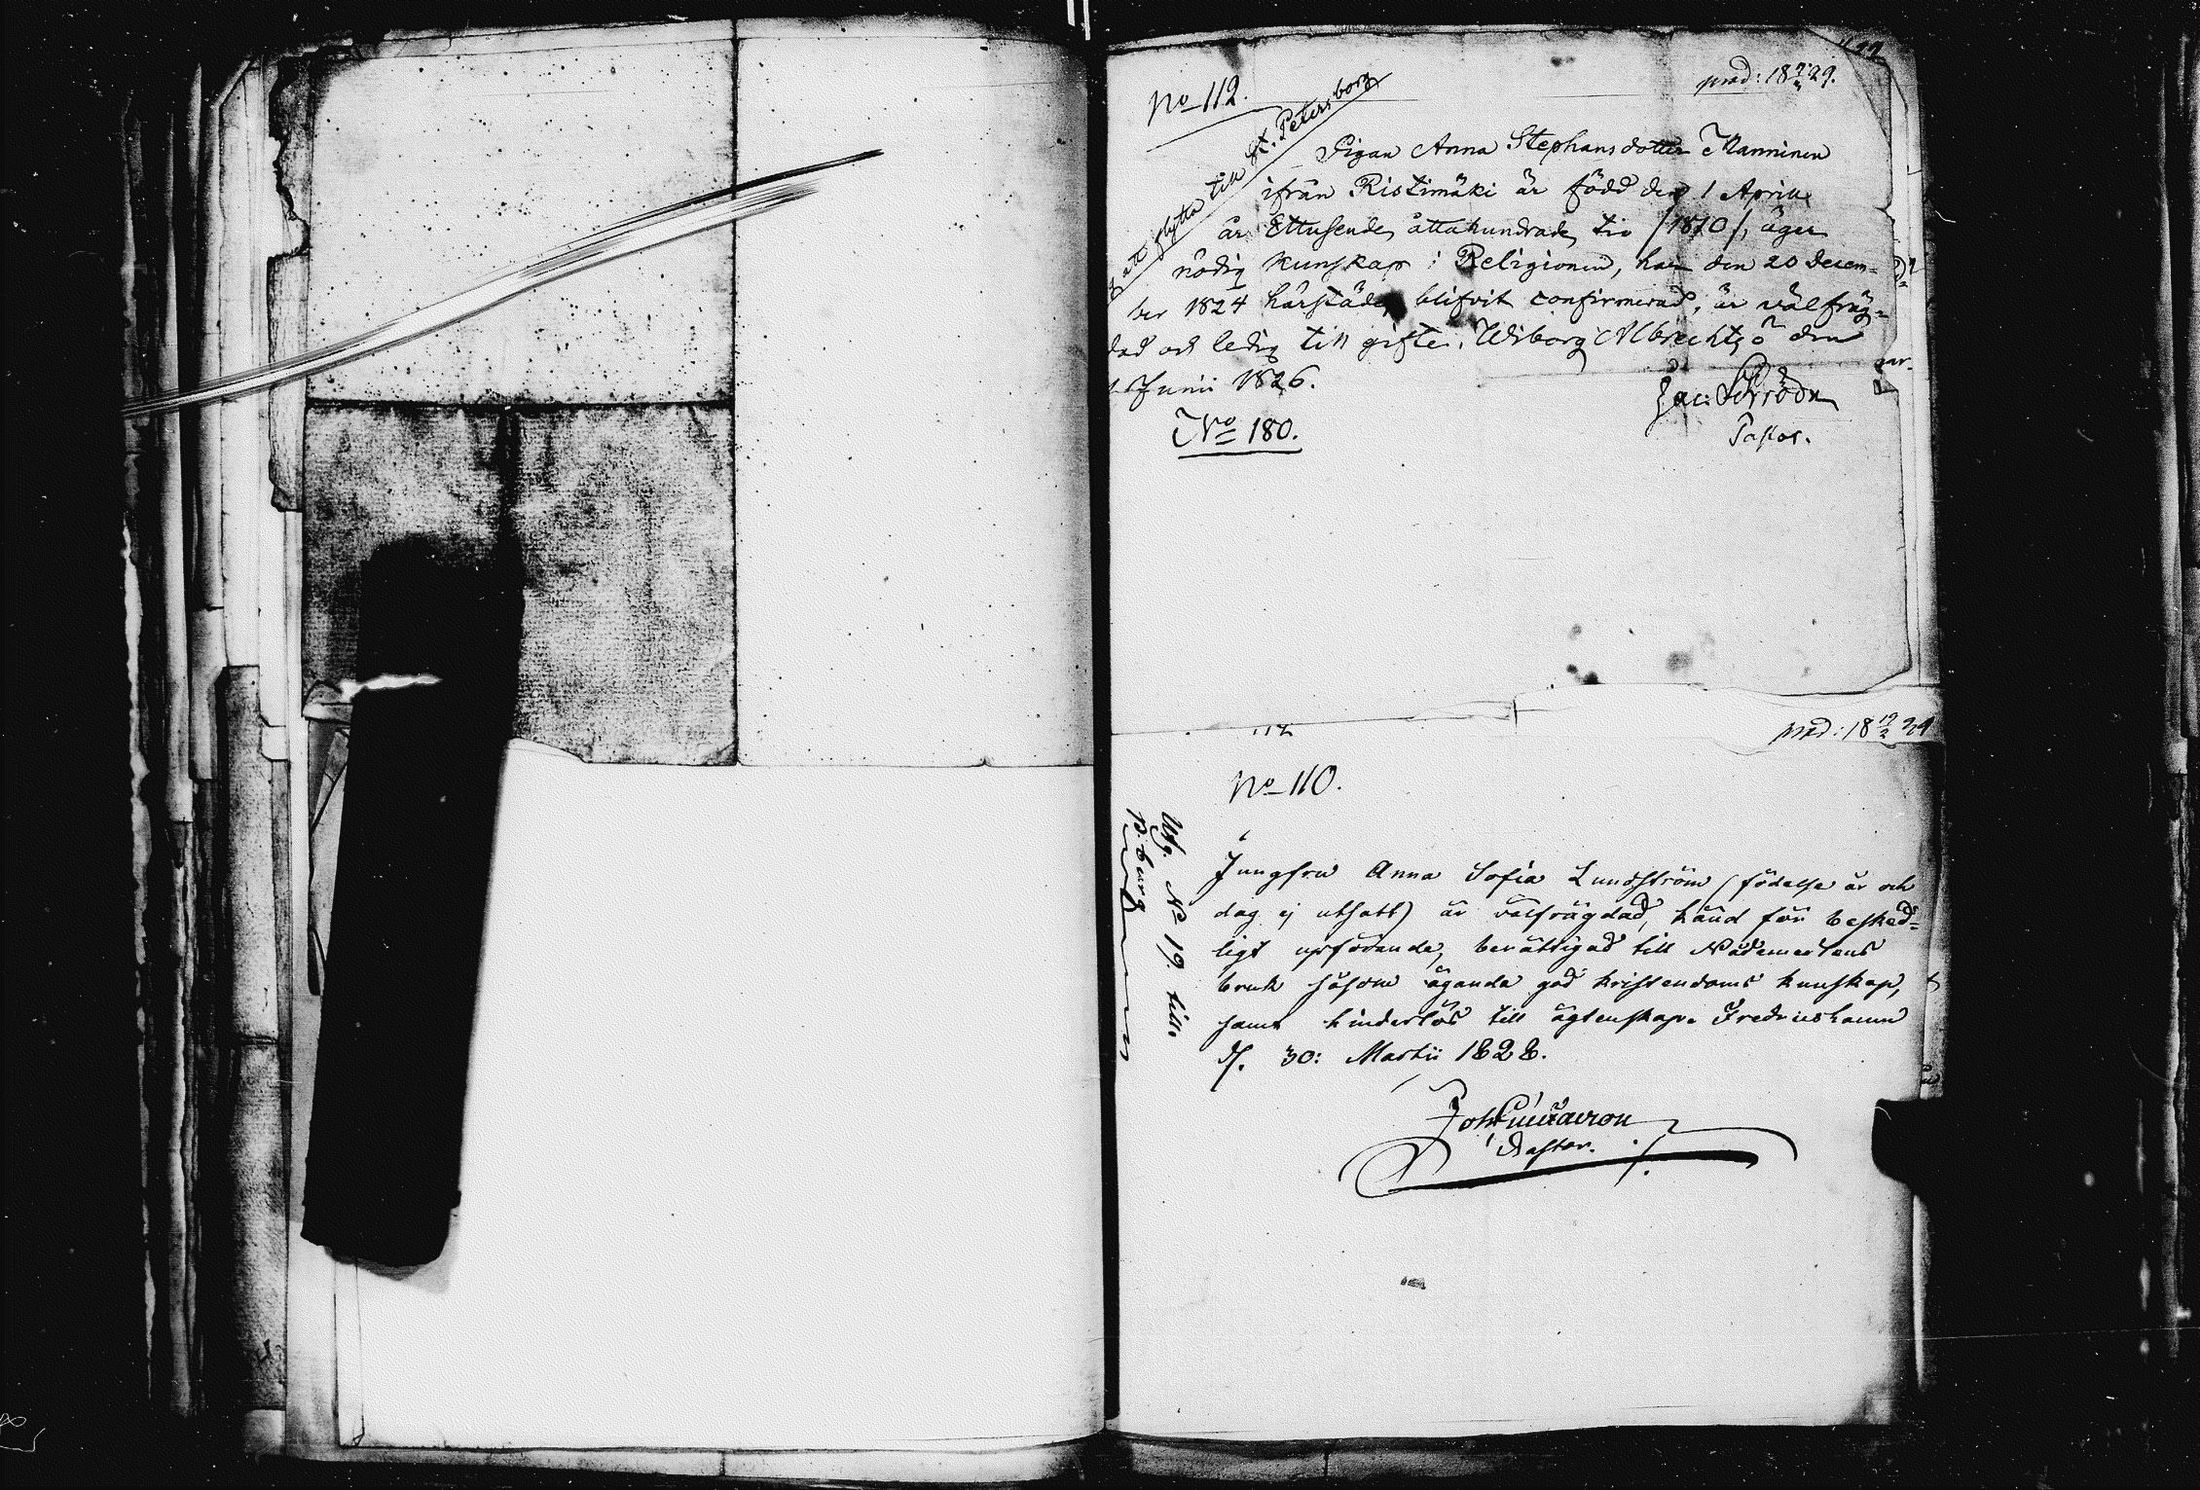 No 112.
pred: 18 9/2 29.
att flytta till St. Petersborg
Pigan Anna Stephansdotter Manninen
ifrån Ristimäki är född den 1 Aprill
år Ettusende, åttahundrade, tio /1810/, äger
nödig kunskap i Religionen, har den 20 Decem=
ber 1824 härstädes blifvit confirmerad, är välfräg=
dad och ledig till gifte. Wiborg Albrechtsö den
Junii 1826.
Pastor.
No 180.
pred: 18 19/2 29
No 110.
Utfl. No 19. till
P.burg
Jungfru Anna Sofia Lundström (födelse år och
dag ej utsatt) är välfrägdad, känd för besked=
ligt upförande, berättigad till Nademedlens
bruk såsom ägande god kristendoms kunskap,
samt hinderlös till ägtenskap. Fredricshamn
d. 30: Martii 1828.
Pastor.